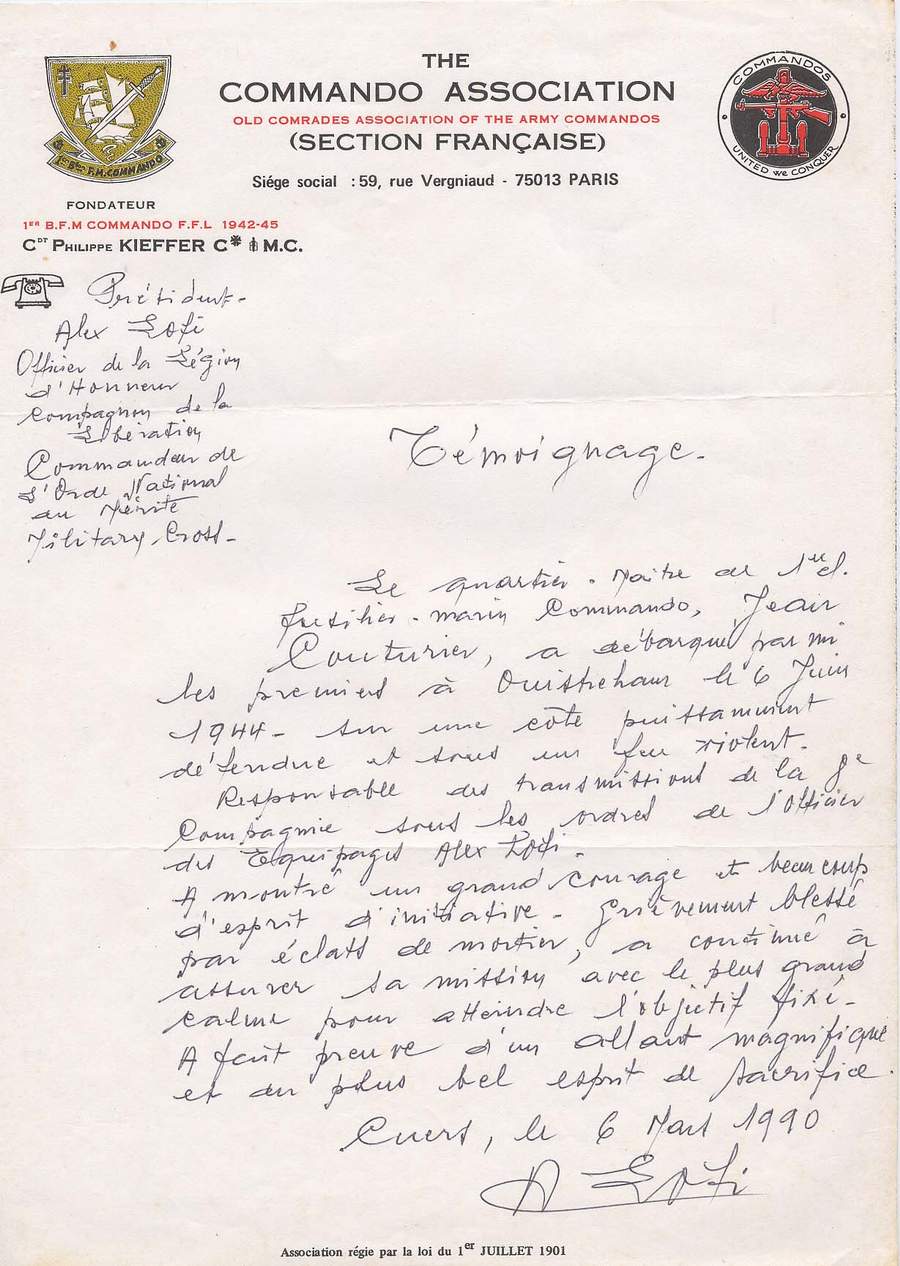 THE
COMMANDO ASSOCIATION
OLD COMRADES ASSOCIATION OF THE ARMY COMMANDOS
(SECTION FRANÇAISE)
Siége social : 59, rue Vergniaud - 75013 PARIS
1er Bton F.M. COMMANDO
COMMANDOS
UNITED we CONQUER
FONDATEUR
1ER B.F.M COMMANDO F.F.L 1942-45
CDT PHILIPPE KIEFFER C M.C.
Président -
Alex Lofi
Officier de la Légion
d'Honneur
Compagnon de la
Libération
Commandeur de
l'Orde National
du Mérite
Military-Cross -
Témoignage -
Le quartier-Maître de 1re cl.
fusilier-marin Commando, Jean
Couturier, a débarqué parmi
les premiers à Ouistreham le 6 Juin
1944 - sur une côte puissamment
défendue et sous un feu violent -
Responsable des transmissions de la 8e
Compagnie sous les ordres de l'Officier
des Equipages Alex Lofi -
A montré un grand courage et beaucoup
d'esprit d'initiative - Grièvement blessé
par éclats de mortier, a continué à
assurer sa mission avec le plus grand
calme pour atteindre l'objectif fixé -
A fait preuve d'un allant magnifique
et du plus bel esprit de sacrifice.
Cuers, le 6 Mars 1990
A Lofi
Association régie par la loi du 1er JUILLET 1901